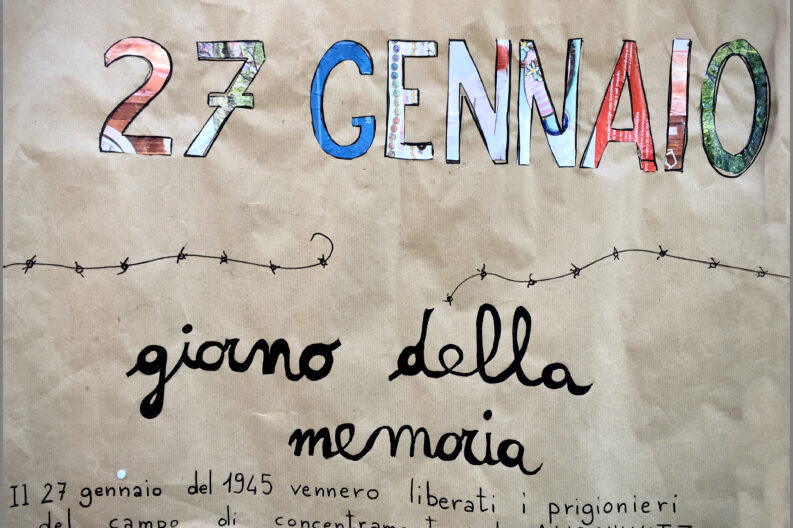 27 GENNAIO
giorno della
memoria
Il 27 gennaio del 1945 vennero liberati i prigionieri
del campo di